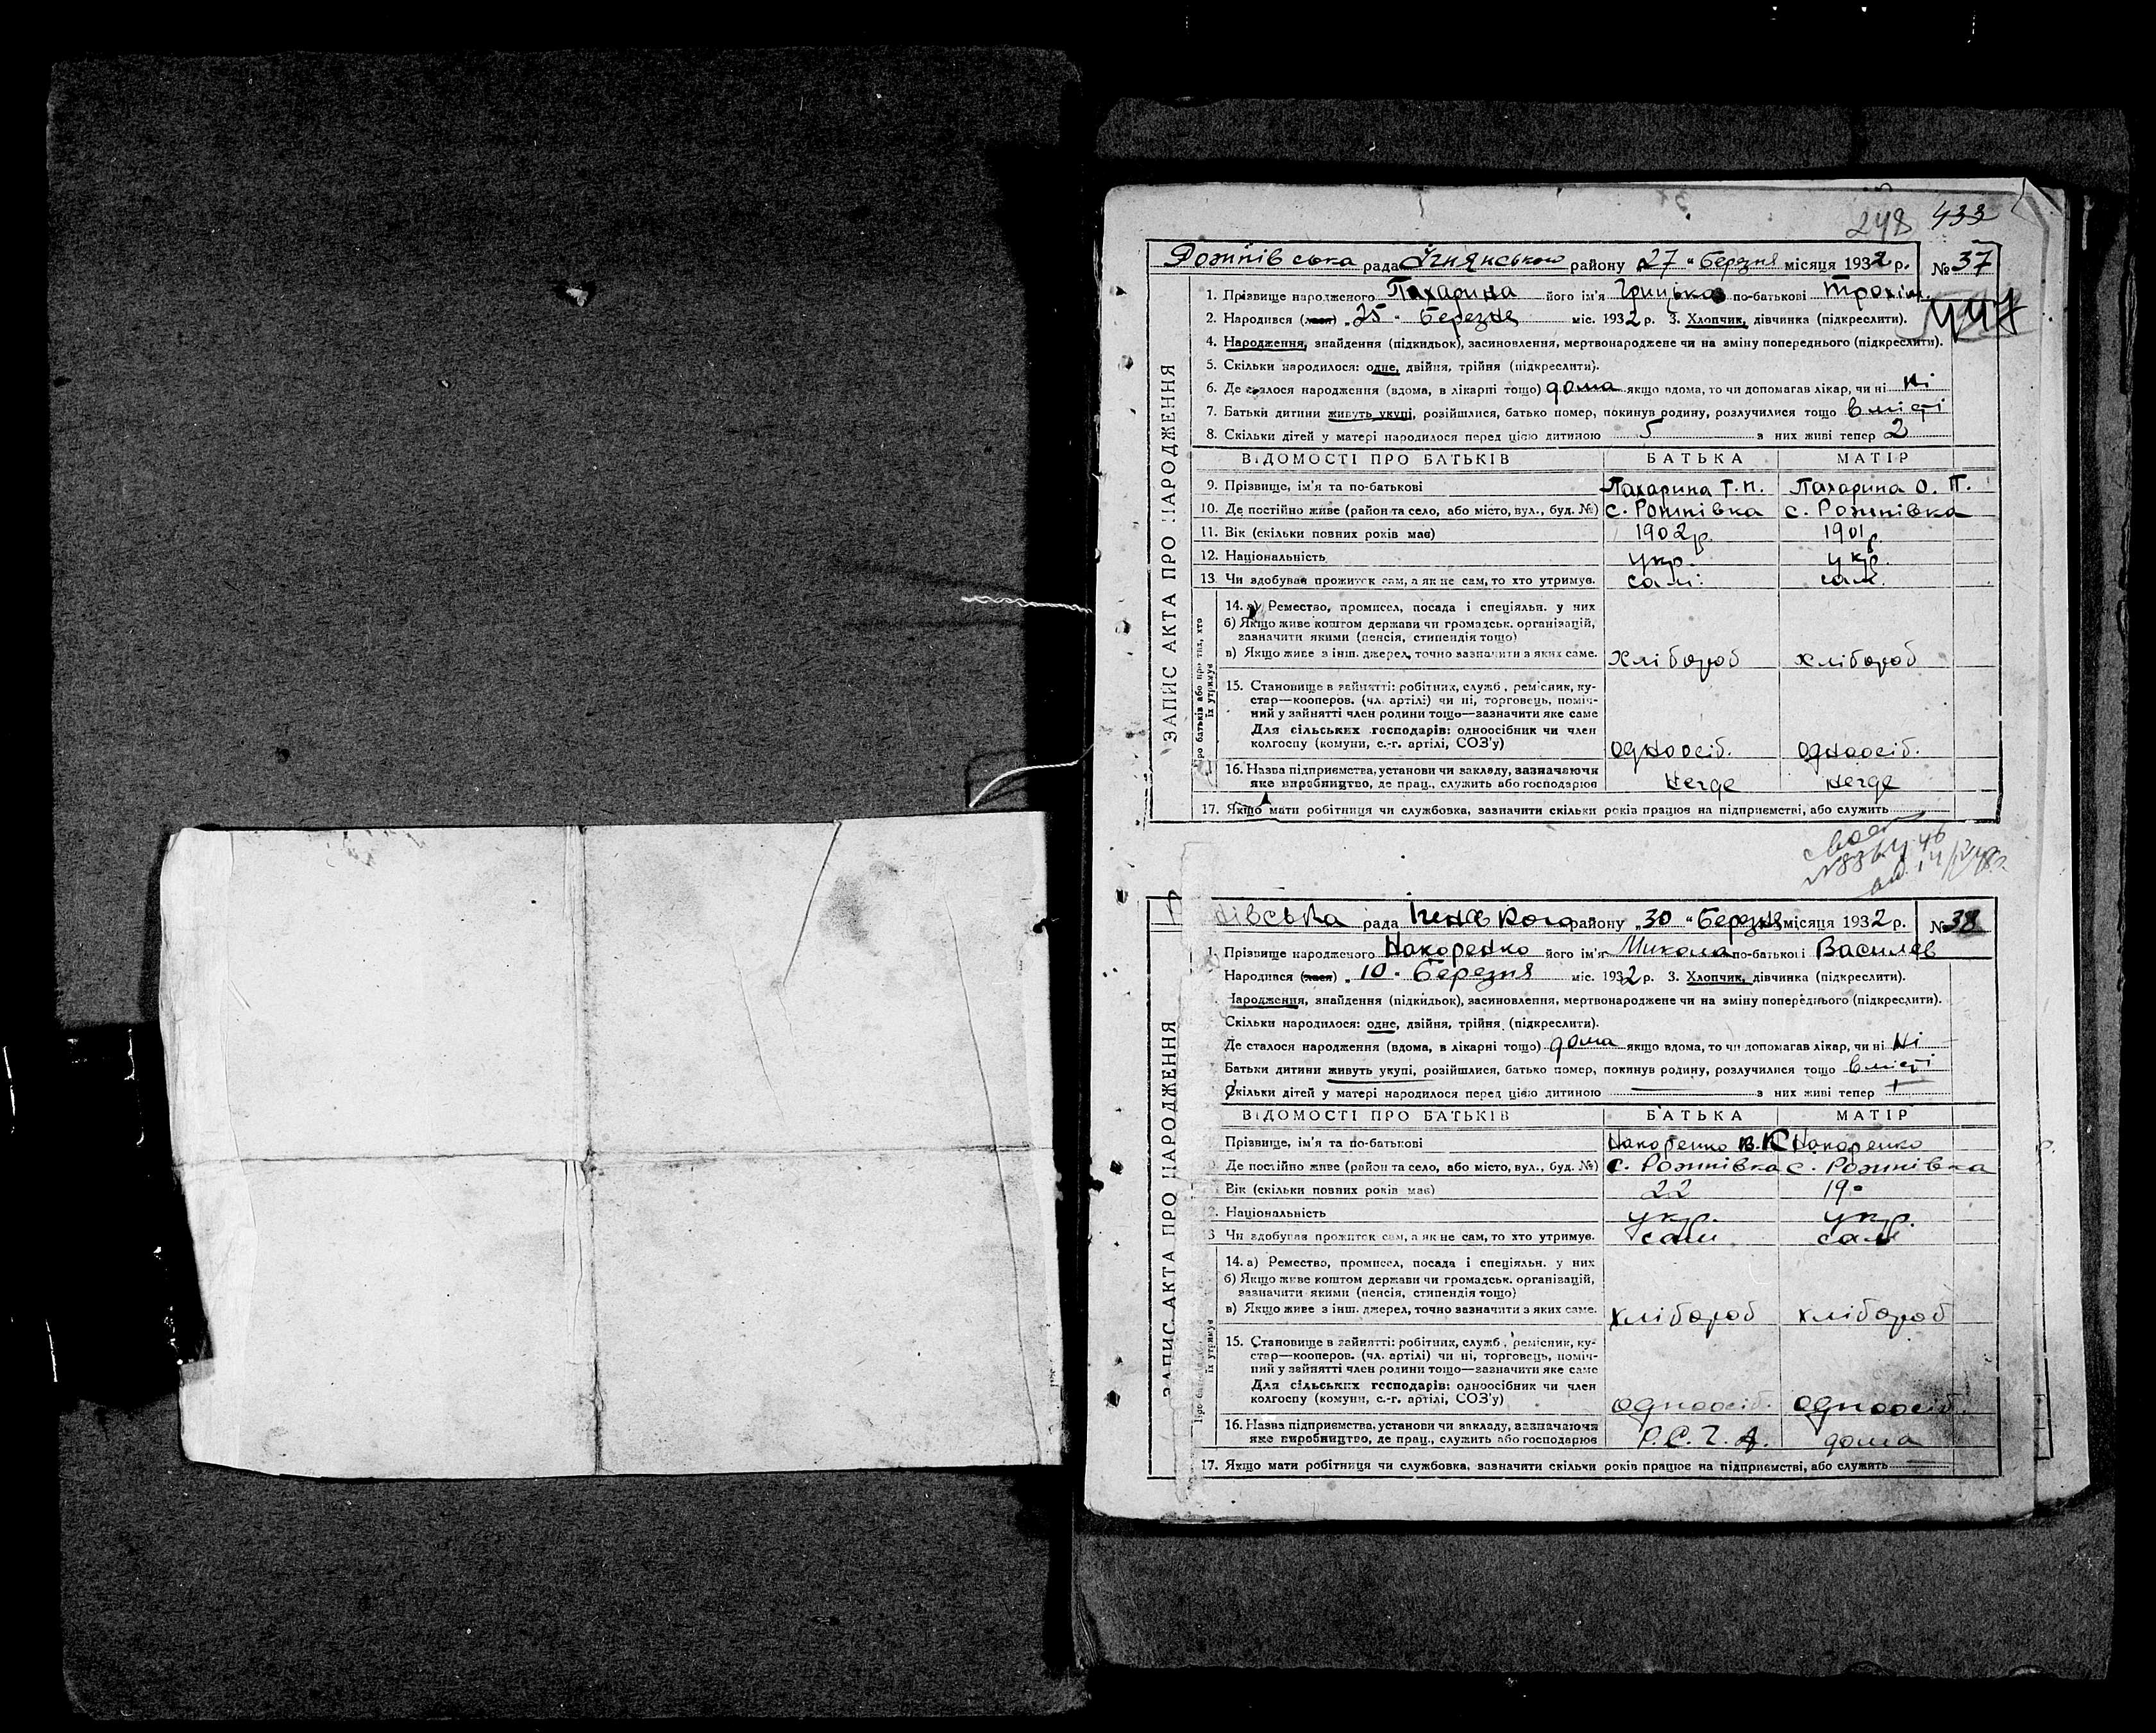 248 433
Рожнівська рада Ічнянського району „27“ березня місяця 1932 р. № 37
1. Прізвище народженого Пахарина його ім'я Грицько по-батькові Трохим.
2. Народився (лася) „25“ березня міс. 1932 р. 3. Хлопчик, дівчинка (підкреслити).
4. Народження, знайдення (підкидьок), засиновлення, мертвонароджене чи на зміну попереднього (підкреслити).
5. Скільки народилося: одне, двійня, трійня (підкреслити).
6. Де сталося народження (вдома, в лікарні тощо) дома якщо вдома, то чи допомагав лікар, чи ні ні
7. Батьки дитини живуть укупі, розійшлися, батько помер, покинув родину, розлучилися тощо вмісті
8. Скільки дітей у матері народилося перед цією дитиною 5 з них живі тепер 2
ЗАПИС АКТА ПРО НАРОДЖЕННЯ
ВІДОМОСТІ ПРО БАТЬКІВ БАТЬКА МАТІР
9. Прізвище, ім'я та по-батькові Пахарина Т. П. Пахарина О. П.
10. Де постійно живе (район та село, або місто, вул., буд. №) с. Рожнівка с. Рожнівка
11. Вік (скільки повних років має) 1902 р. 1901 р.
12. Національність укр. укр.
13. Чи здобував прожиток сам, а як не сам, то хто утримув. сам. сам.
Про батьків або про тих, хто
їх утримує
14. а) Ремество, промисел, посада і спеціяльн. у них
б) Якщо живе коштом держави чи громадськ. організацій,
зазначити якими (пенсія, стипендія тощо)
в) Якщо живе з інш. джерел, точно зазначити з яких саме. хлібороб хлібороб
15. Становище в зайнятті: робітник, служб., ремісник, ку-
стар—кооперов. (чл. артілі) чи ні, торговець, поміч-
ний у зайнятті член родини тощо—зазначити яке саме
Для сільських господарів: одноосібник чи член
колгоспу (комуни, с.-г. артілі, СОЗ'у) одноосіб. одноосіб.
16. Назва підприємства, установи чи закладу, зазначаючи
яке виробництво, де прац., служить або господарює негде негде
17. Якщо мати робітниця чи службовка, зазначити скільки років працює на підприємстві, або служить
івська рада Ічнянського району „30“ березня місяця 1932 р. № 38
1. Прізвище народженого Накоренко його ім'я Микола по-батькові Василев
Народився (лася) „10“ березня міс. 1932 р. 3. Хлопчик, дівчинка (підкреслити).
Народження, знайдення (підкидьок), засиновлення, мертвонароджене чи на зміну попереднього (підкреслити).
Скільки народилося: одне, двійня, трійня (підкреслити).
Де сталося народження (вдома, в лікарні тощо) дома якщо вдома, то чи допомагав лікар, чи ні ні
Батьки дитини живуть укупі, розійшлися, батько помер, покинув родину, розлучилися тощо вмісті
Скільки дітей у матері народилося перед цією дитиною — з них живі тепер 1
ЗАПИС АКТА ПРО НАРОДЖЕННЯ
ВІДОМОСТІ ПРО БАТЬКІВ БАТЬКА МАТІР
Прізвище, ім'я та по-батькові Накоренко В. К. Накоренко
Де постійно живе (район та село, або місто, вул., буд. №) с. Рожнівка с. Рожнівка
Вік (скільки повних років має) 22 19
Національність укр. укр.
3 Чи здобував прожиток сам, а як не сам, то хто утримув. сам сам
їх утримує
14. а) Ремество, промисел, посада і спеціяльн. у них
б) Якщо живе коштом держави чи громадськ. організацій,
зазначити якими (пенсія, стипендія тощо)
в) Якщо живе з інш. джерел, точно зазначити з яких саме. хлібороб хлібороб
15. Становище в зайнятті: робітник, служб., ремісник, ку-
стар—кооперов. (чл. артілі) чи ні, торговець, поміч-
ний у зайнятті член родини тощо—зазначити яке саме
Для сільських господарів: одноосібник чи член
колгоспу (комуни, с.-г. артілі, СОЗ'у) одноосіб. одноосіб.
16. Назва підприємства, установи чи закладу, зазначаючи
яке виробництво, де прац., служить або господарює Р.С.Ч.А. дома
17. Якщо мати робітниця чи службовка, зазначити скільки років працює на підприємстві, або служить —